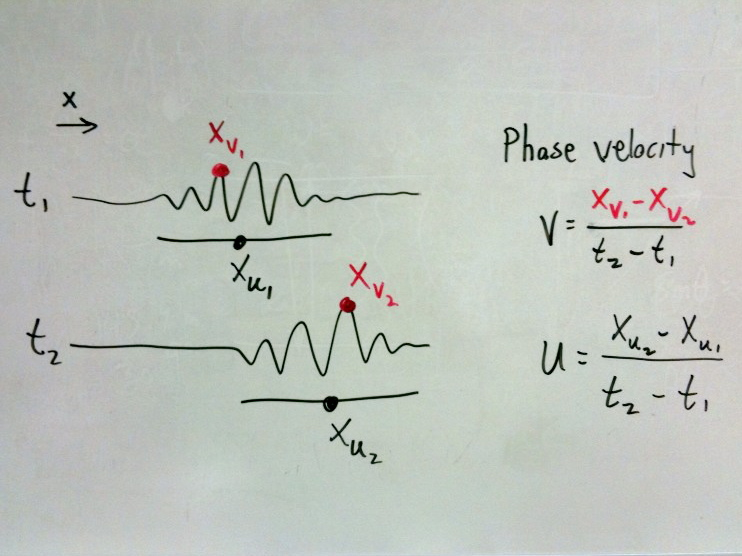 x
x_v₁
t₁
x_u₁
x_v₂
t₂
x_u₂
Phase velocity
V = (x_v₁ - x_v₂) / (t₂ - t₁)
U = (x_u₂ - x_u₁) / (t₂ - t₁)